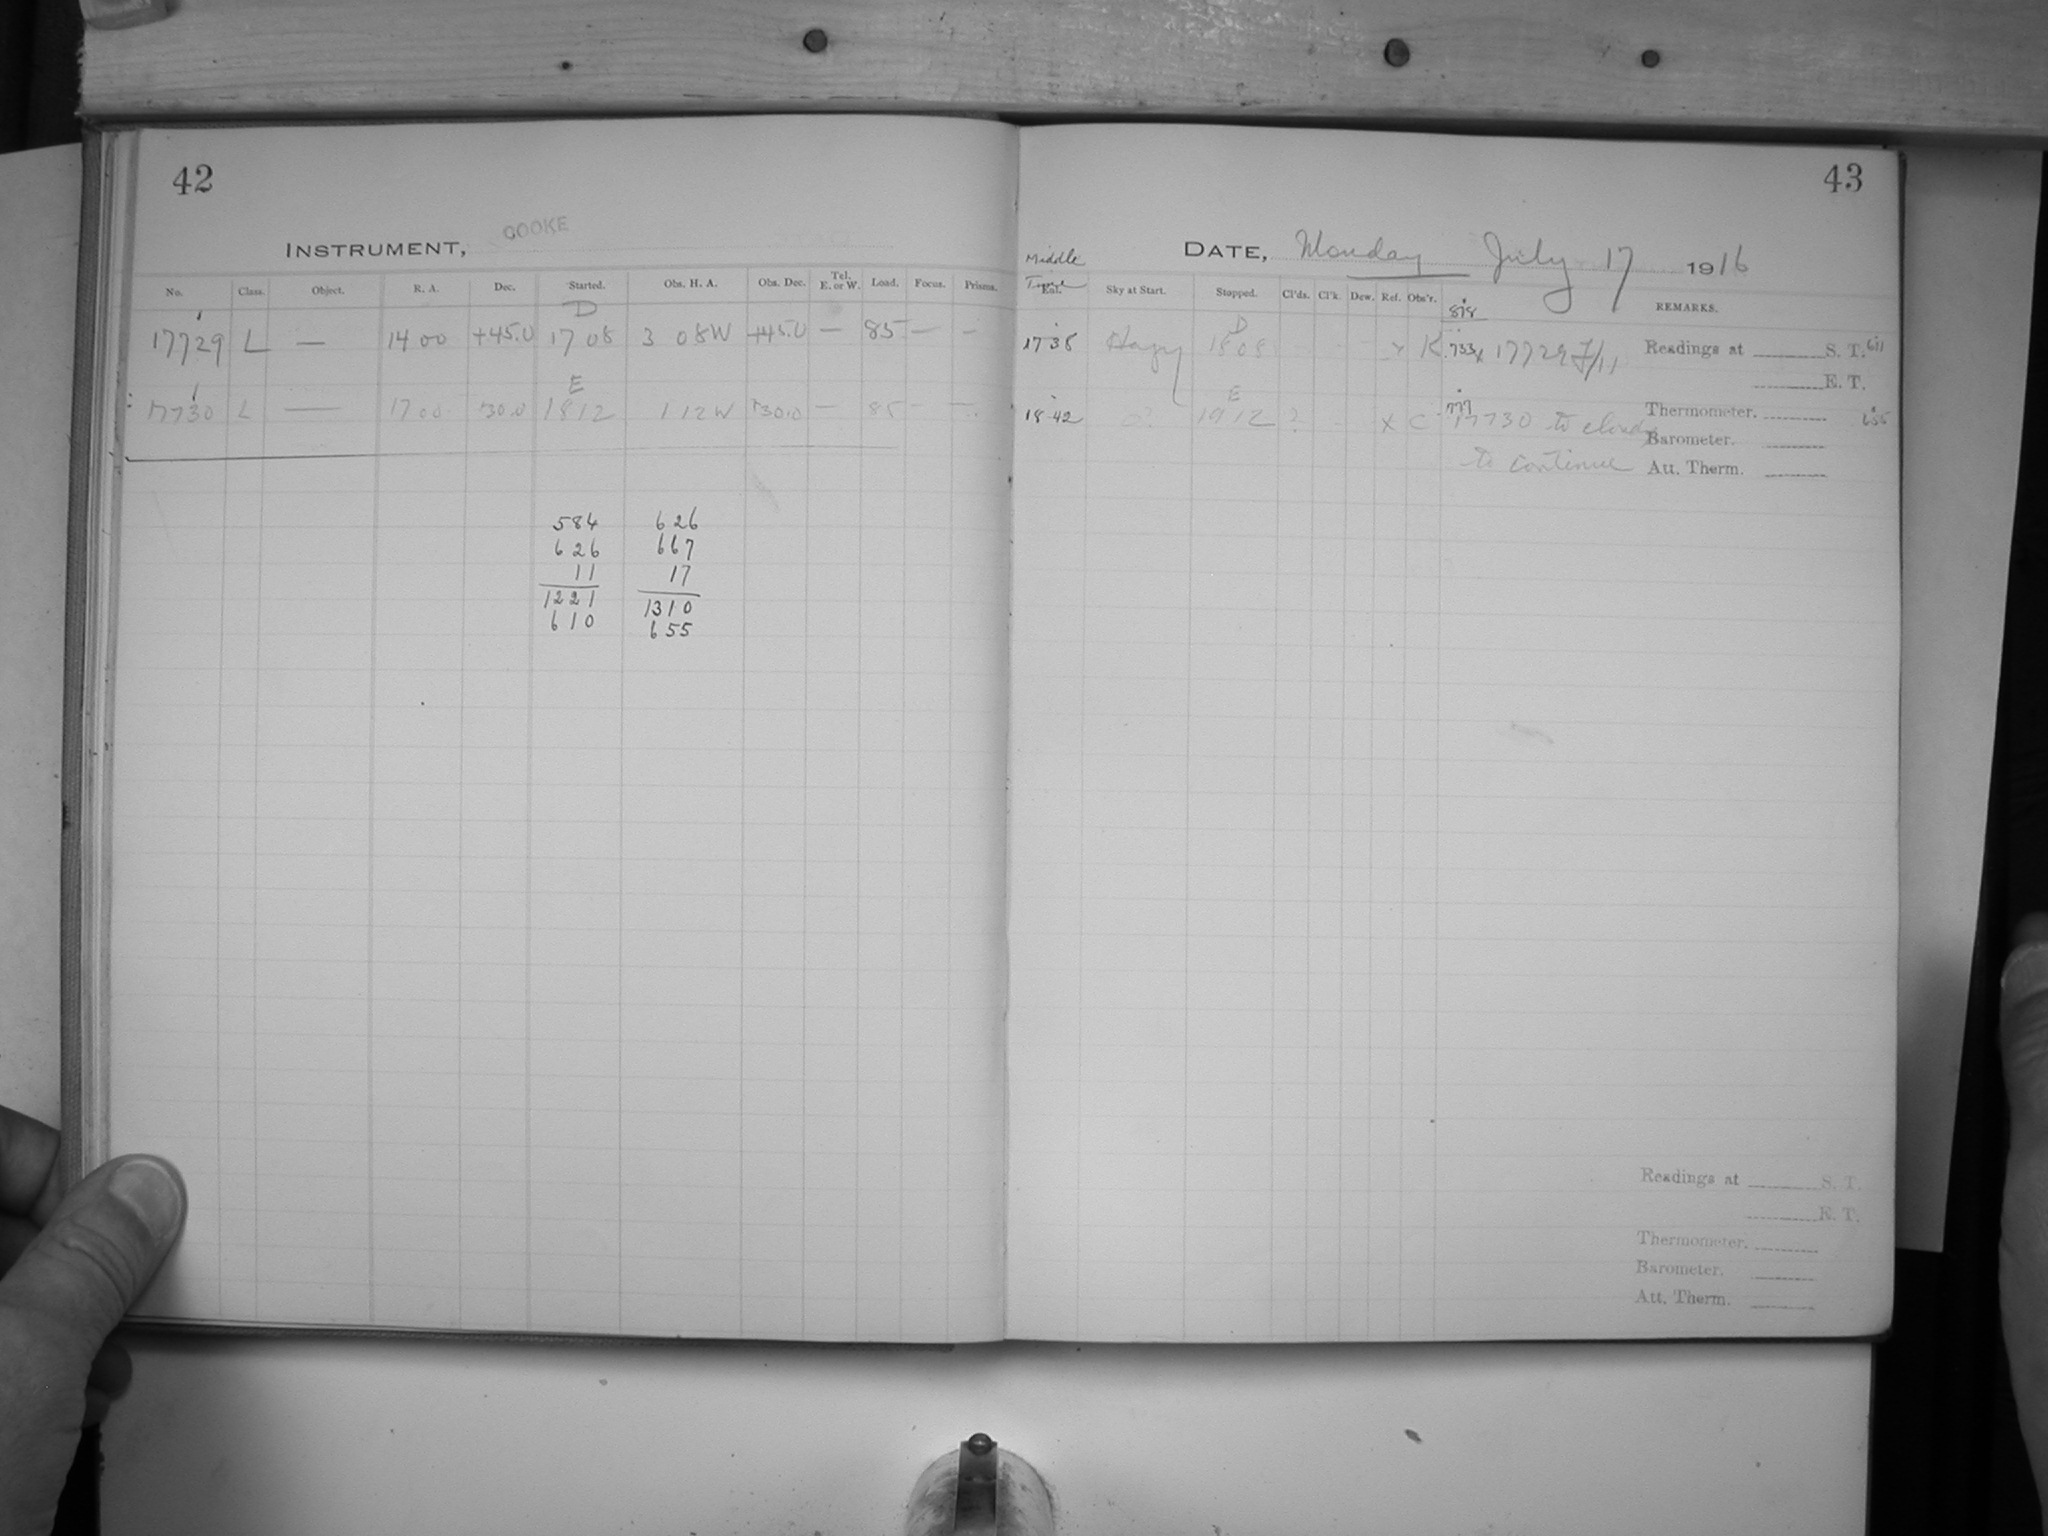 42
INSTRUMENT, COOKE
No. Class. Object. R. A. Dec. Started. Obs. H. A. Obs. Dec. Tel. E. or W. Load. Focus. Prisms.
D
17729 L — 14 00 +45.0 17 08 3 08W +45.0 — 85 — —
E
17730 L — 17 00 +30.0 18 12 1 12W +30.0 — 85 — —
584 626
626 667
11 17
1221 1310
610 655
43
DATE, Monday July 17 1916
Middle
Time
Sky at Start. Stopped. Cl'ds. Cl'k. Dew. Ref. Obs'r. REMARKS.
818
D
17 38 Hazy 18 08 K .733 x 17729 F/11
E
18 42 0? 19 12 ? x C 777 17730 to cloudy
to continue
Readings at S. T. 611
E. T.
Thermometer. 655
Barometer.
Att. Therm.
Readings at S. T.
E. T.
Thermometer.
Barometer.
Att. Therm.